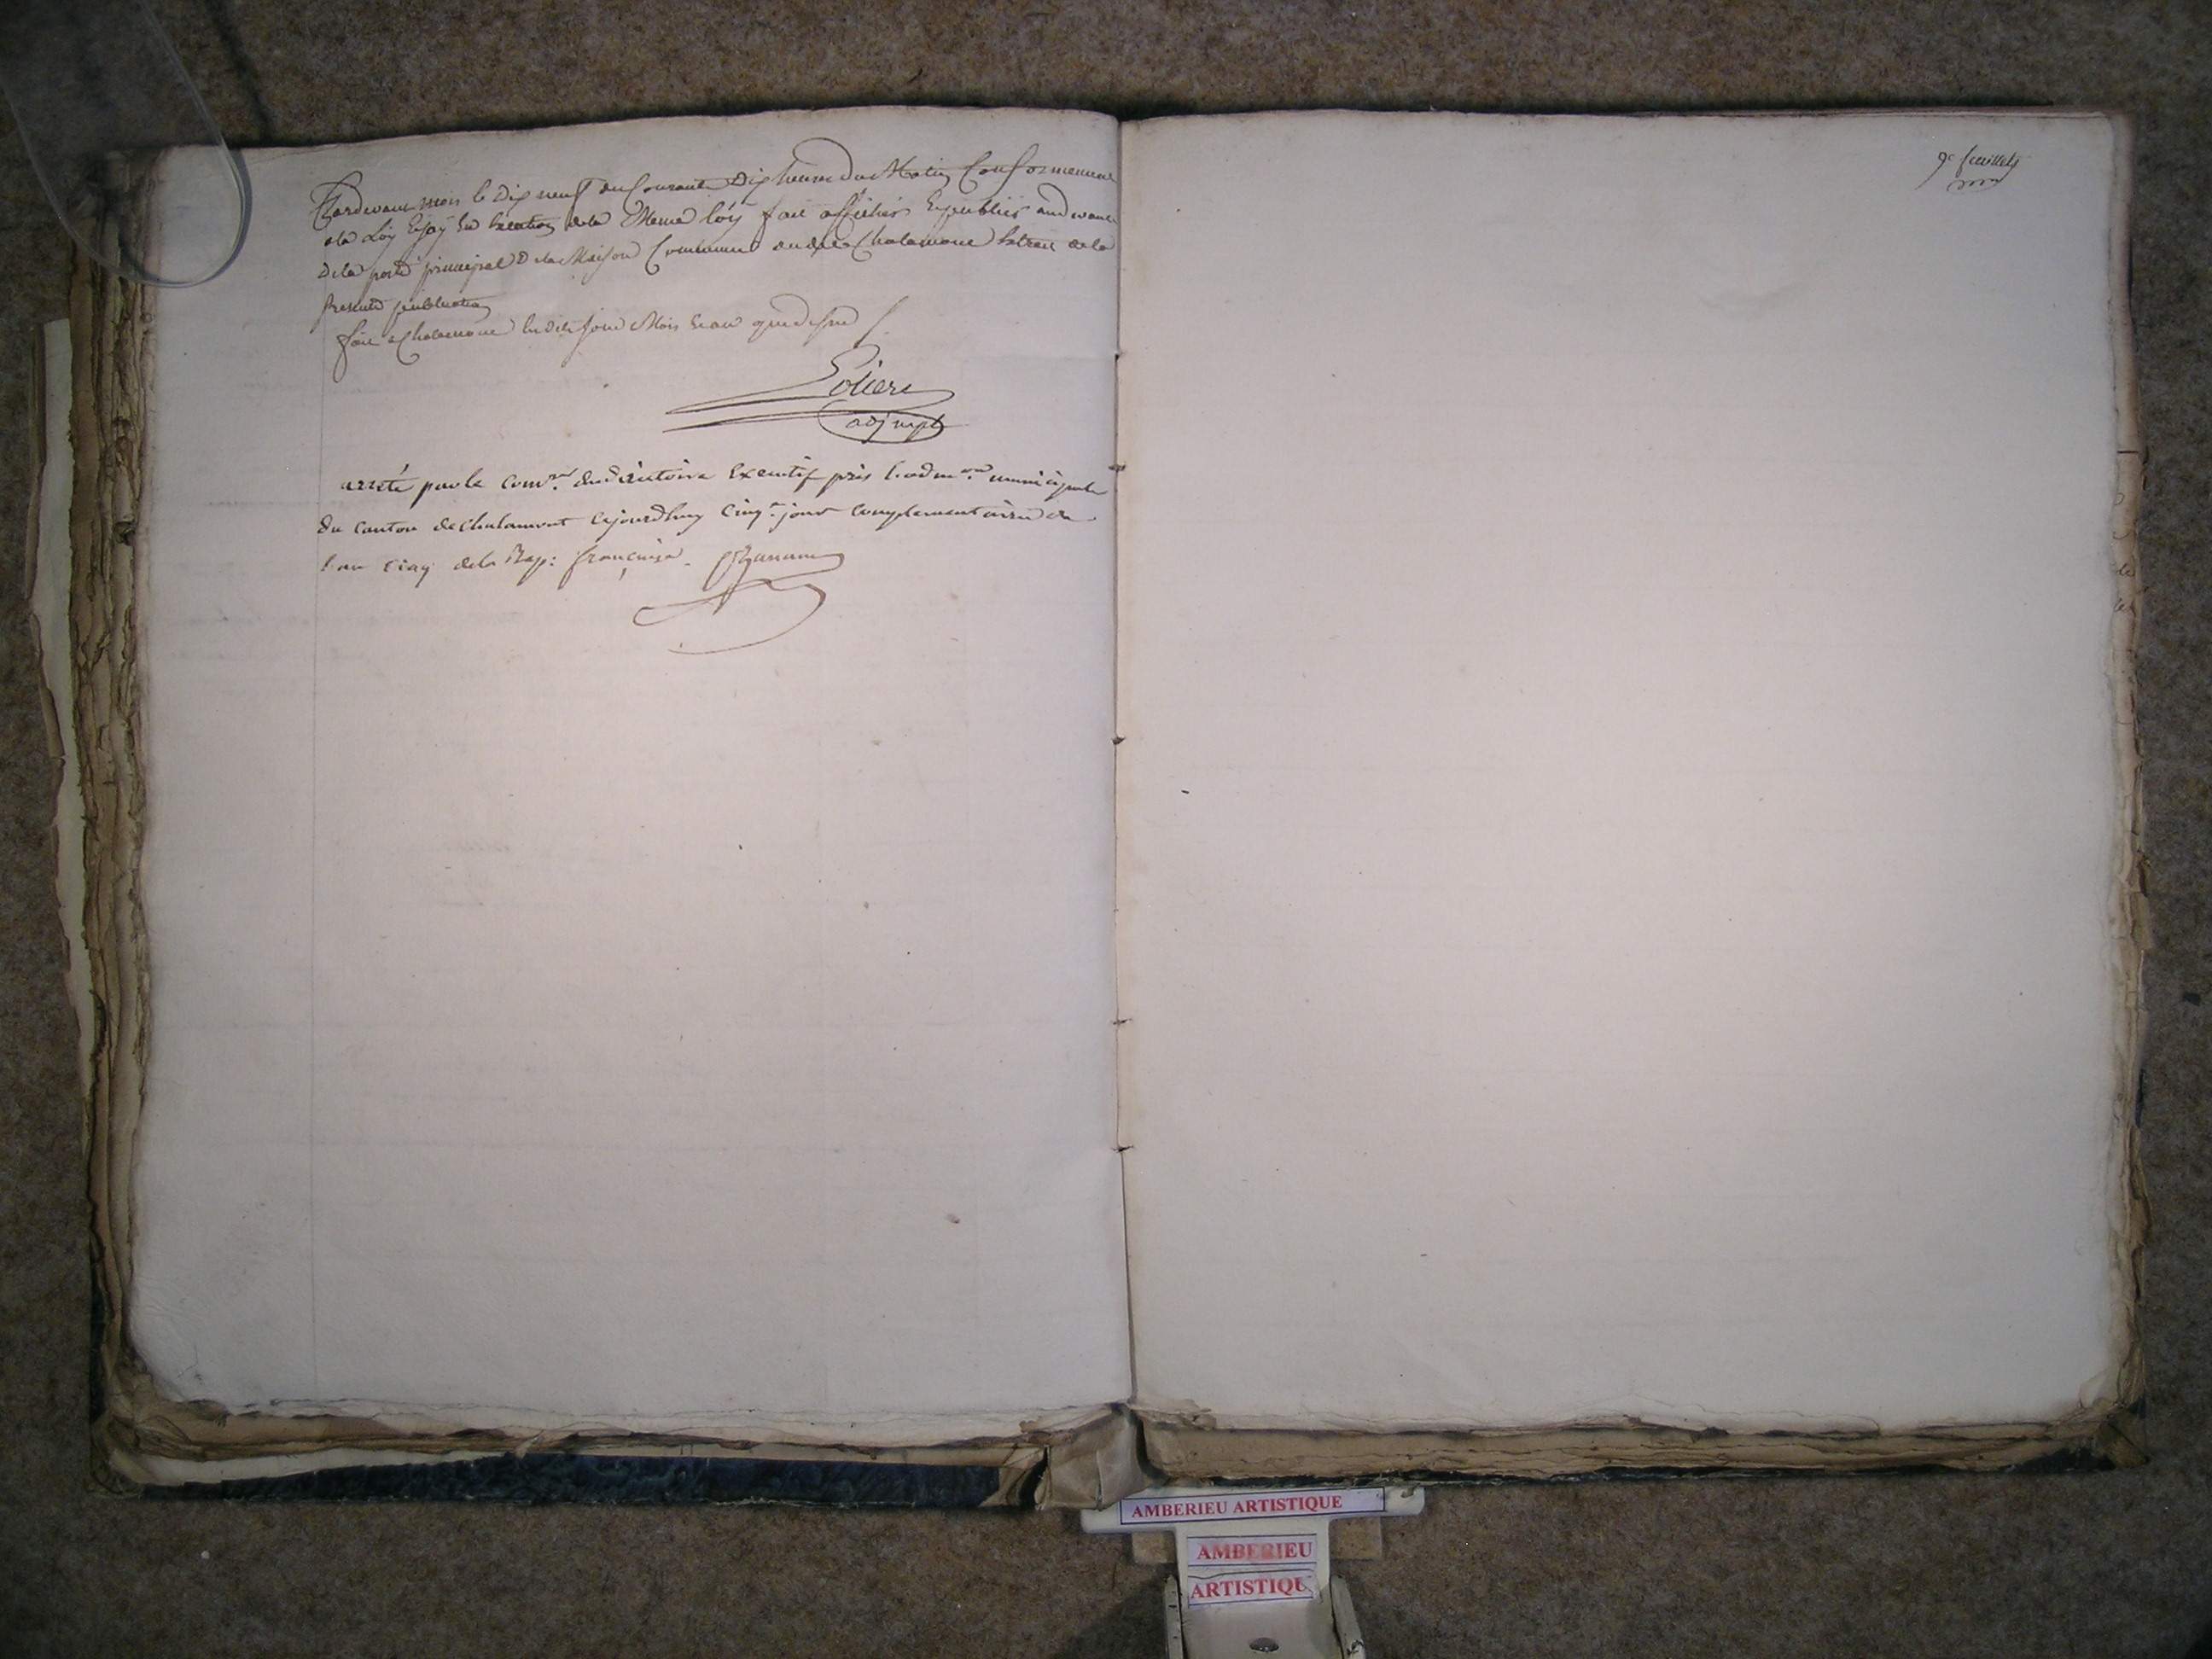 Pardevant moi le Dix neuf du Courant Dix heure du Matin Conformement
a la Loy Et jay En de la Meme loy fait affiché Et publié audevant
de la porte principal de la Maison Commune dudit Chalamont de la
presente publication
fait a Chalamont lesdits jour Mois Et an que dessus
adj mpl
arreté par le comre. du directoire Executif près l'admon. municipale
du canton de chalamont cejourdhuy cinqe. jour complementaire de
l'an cinq de la Rep: française.
9e feuillet
AMBERIEU ARTISTIQUE
AMBERIEU
ARTISTIQU